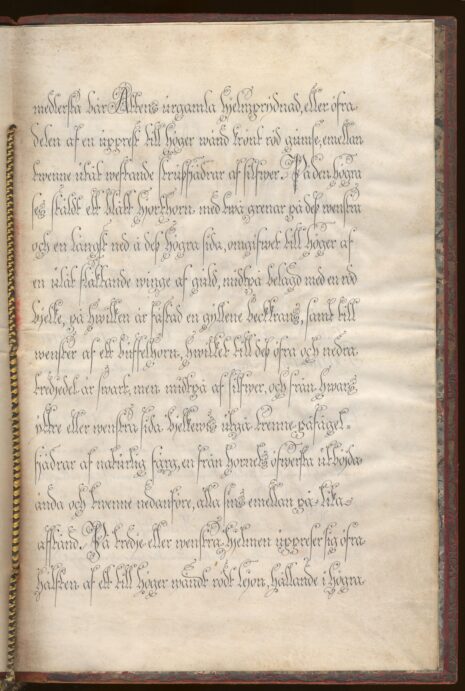 medlersta bär Ättens urgamla hjelmprydnad, eller öfra
delen af en uppräkt till höger wänd krönt röd gumse, emellan
twenne utåt wettande strutsfjädrar af silfwer. På den högra
ses stäldt ett blått hjorthorn med twå grenar på dess wenstra
och en längst ned å dess högra sida, omgifwet till höger af
en utåt flattande winge af guld, midtpå belagd med en röd
bjelke, på hwilken är fästad en gyllene beckkrans, samt till
wenster af ett buffelhorn, hwilket till dess öfra och nedra
tredjedel är swart, men midtpå af silfwer, och från hwars
yttre eller wenstra sida bjelkewis utgå trenne påfågel-
fjädrar af naturlig färg, en från hornets öfwersta utböjda
ända och twenne nedanföre, alla sins emellan på lika
afstånd. På tredje eller wenstra hjelmen uppreser sig öfra
hälften af ett till höger wändt rödt lejon, hållande i högra